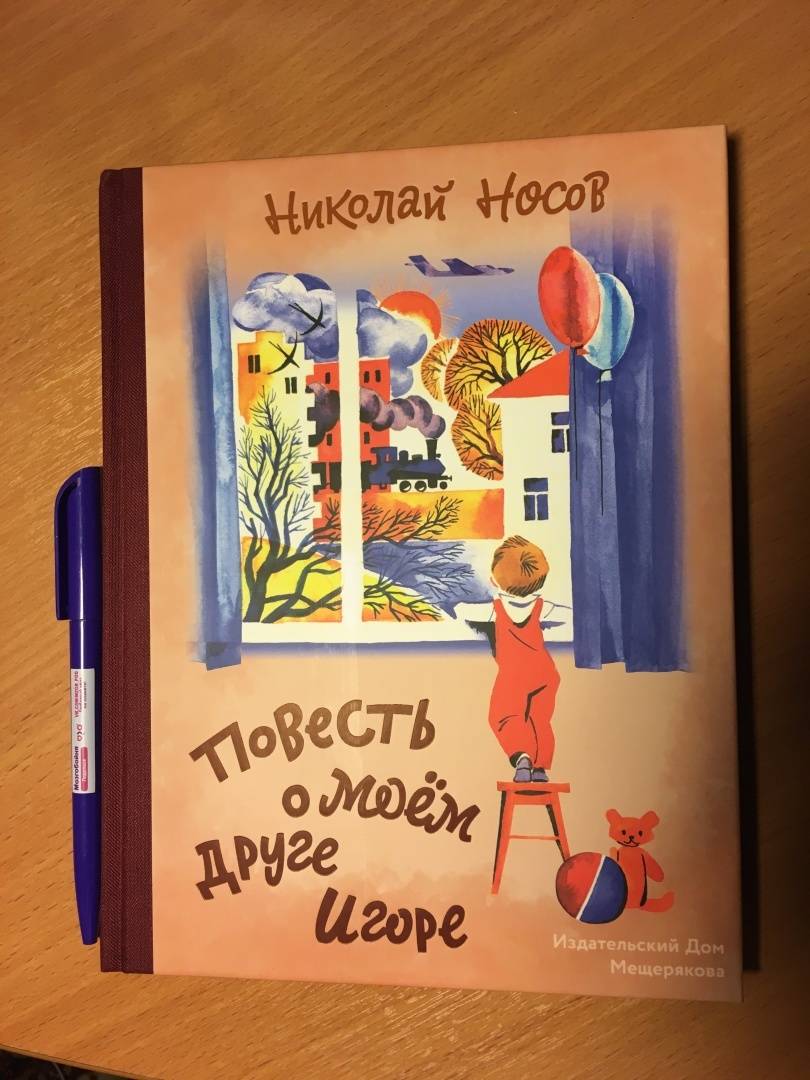 Николай Носов
Повесть
о моём
друге
Игоре
Издательский Дом
Мещерякова
Мозгобойня